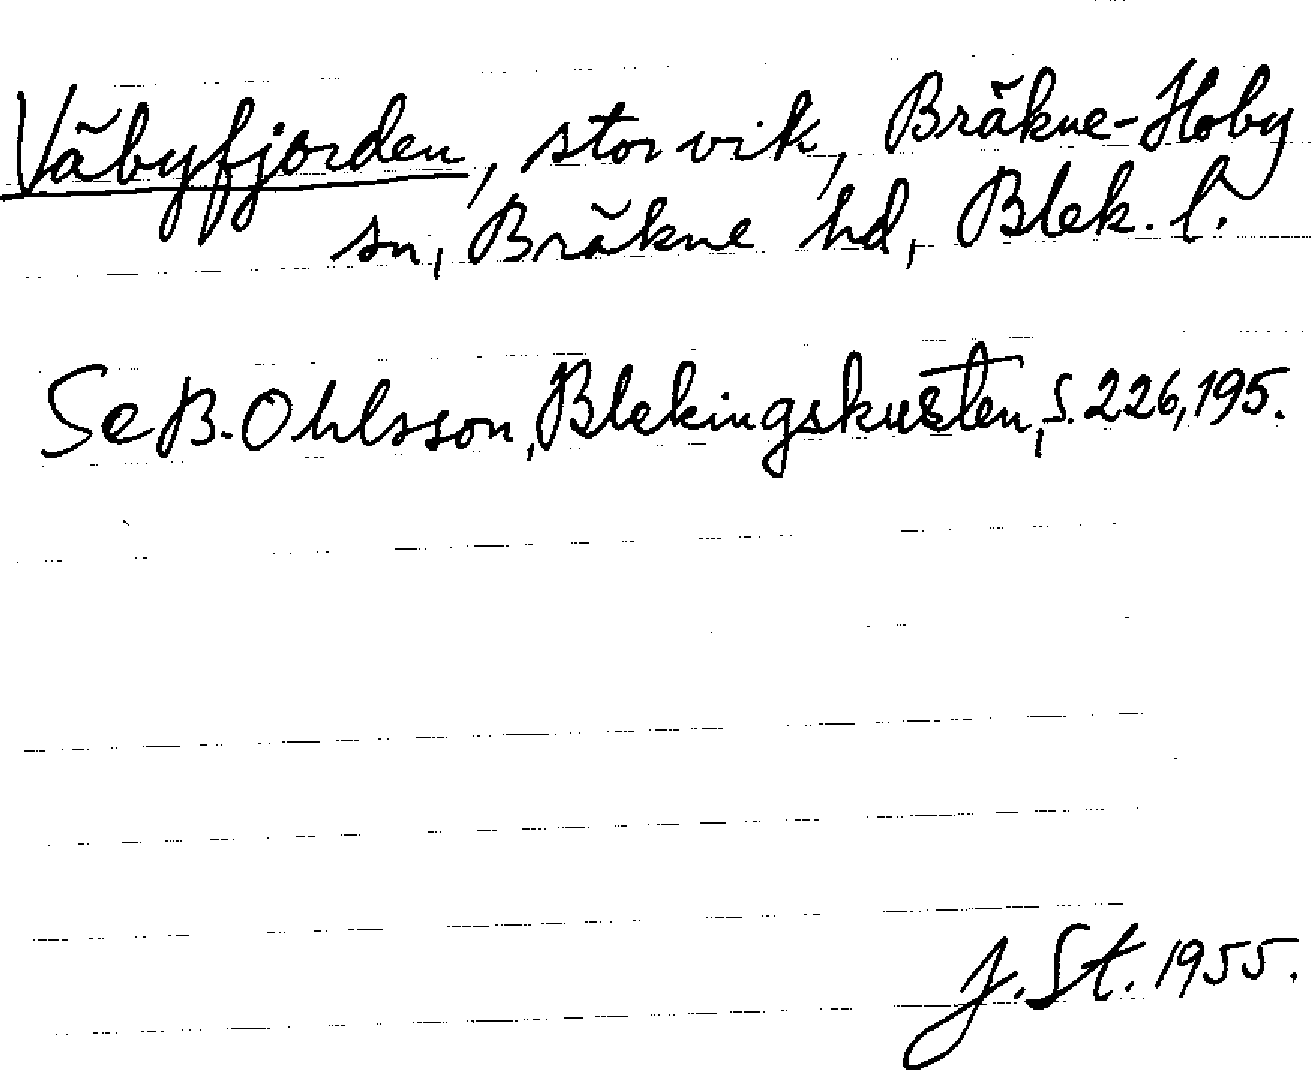 Väbyfjorden, stor vik, Bräkne-Hoby
sn, Bräkne hd, Blek. l.
Se B. Ohlsson, Blekingskusten, s. 226, 195.
J. St. 1955.